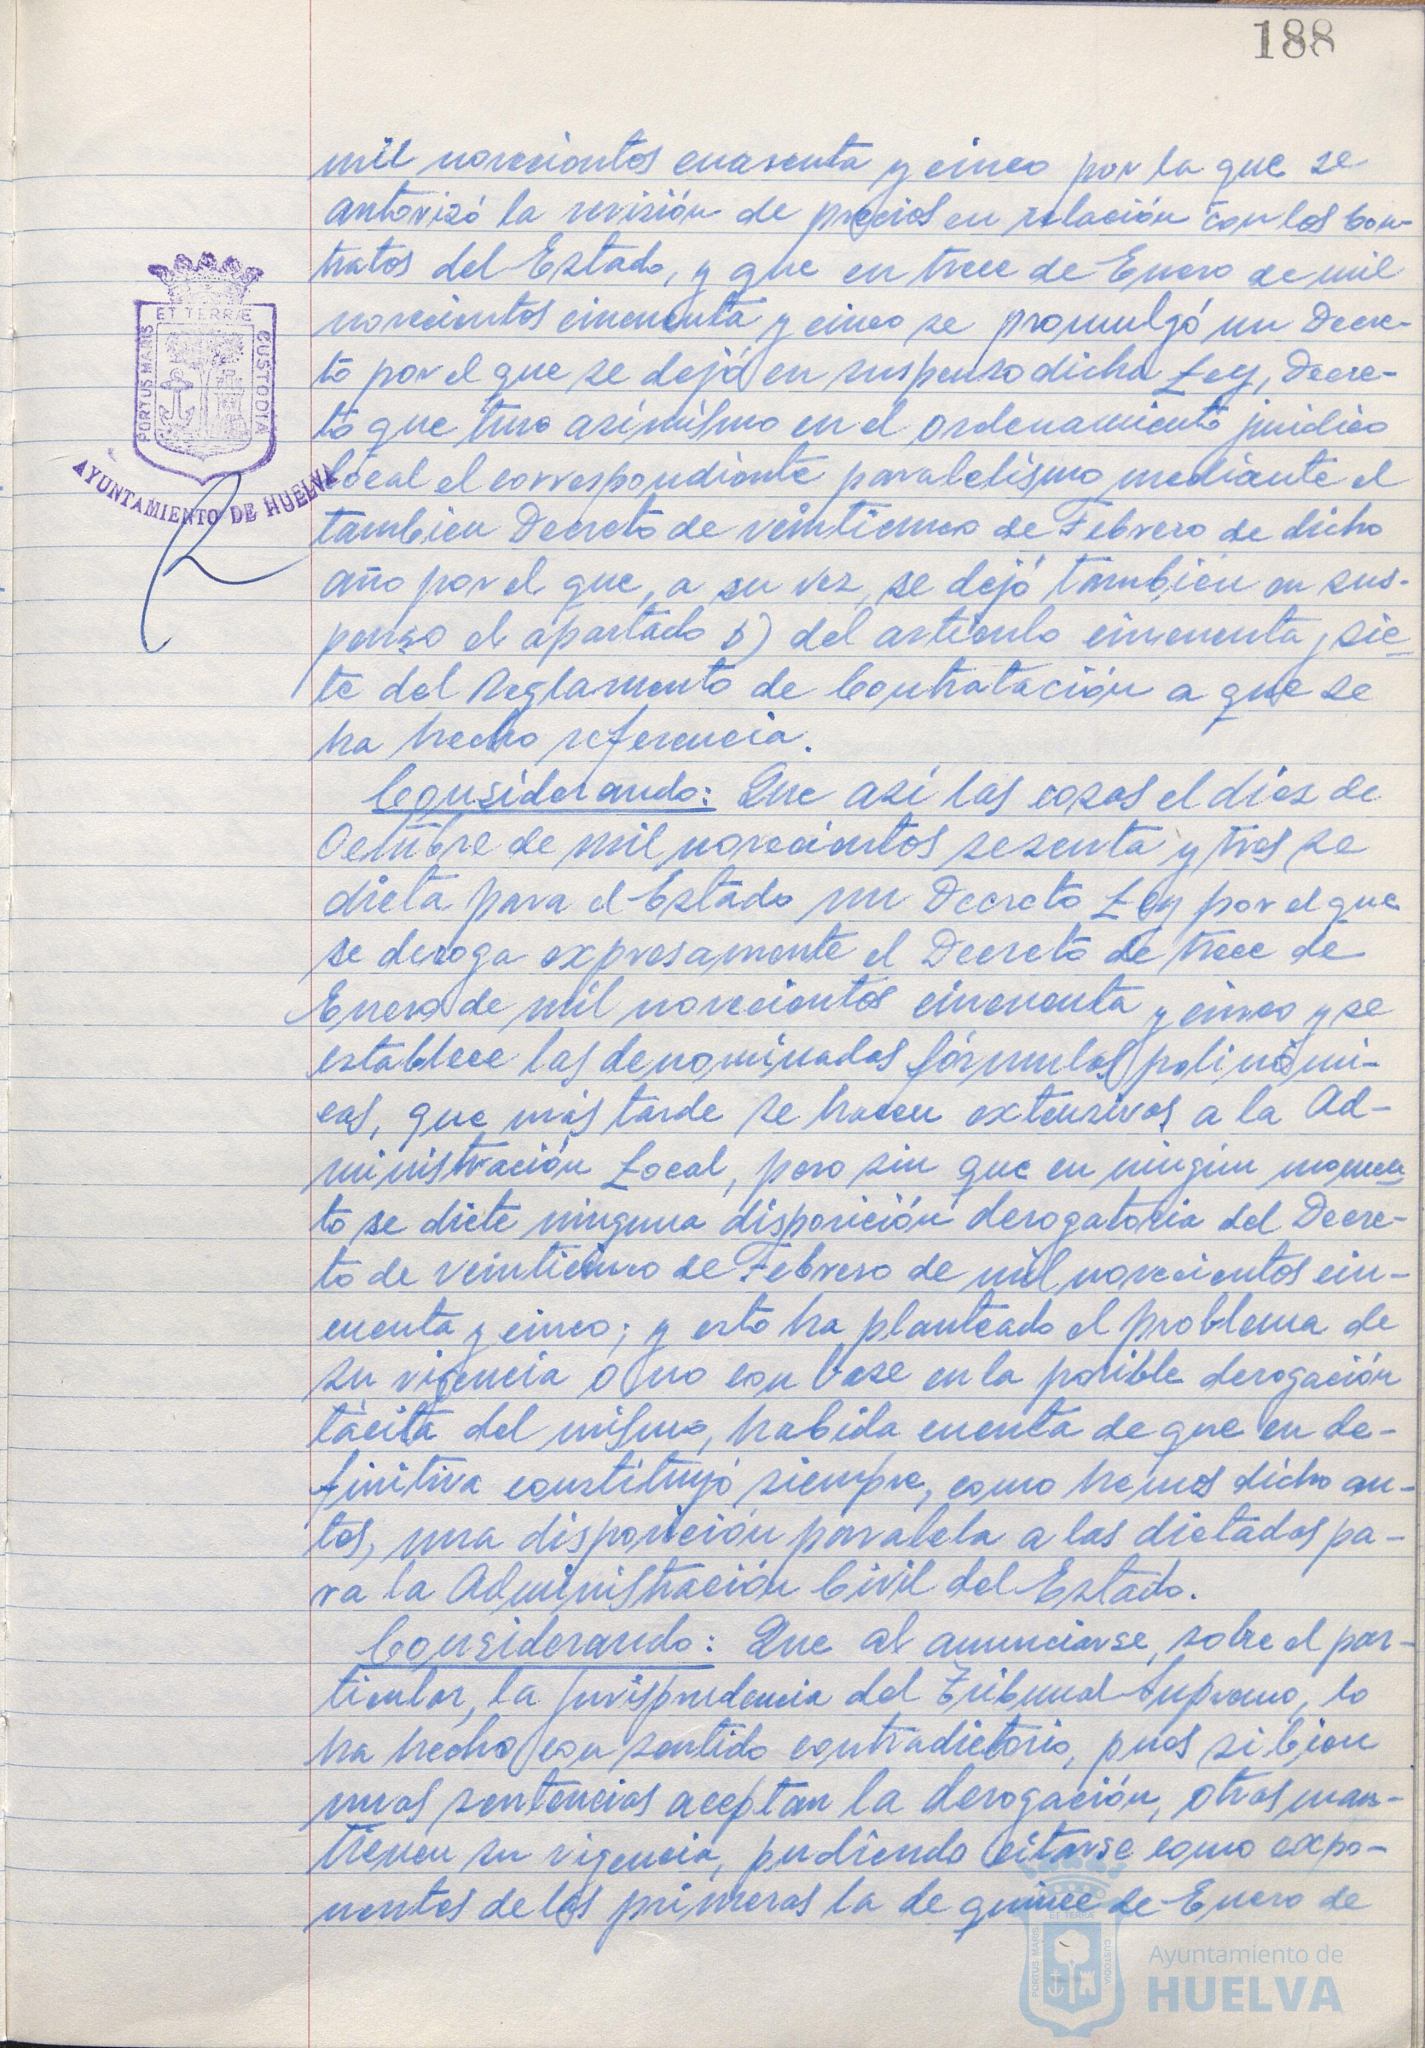 188
mil novecientos cuarenta y cinco por la que se
autorizó la revisión de precios en relación con los Con-
tratos del Estado, y que en trece de Enero de mil
novecientos cincuenta y cinco se promulgó un Decre-
to por el que se dejó en suspenso dicha Ley, Decre-
to que tuvo asimismo en el ordenamiento jurídico
local el correspondiente paralelismo mediante el
tambien Decreto de veinticinco de Febrero de dicho
año por el que, a su vez, se dejó también en sus-
penso el apartado b) del artículo cincuenta y sie-
te del Reglamento de Contratación a que se
ha hecho referencia.
Considerando: Que así las cosas el díez de
Octubre de mil novecientos sesenta y tres se
dicta para el Estado un Decreto Ley por el que
se deroga expresamente el Decreto de trece de
Enero de mil novecientos cincuenta y cinco y se
establece las denominadas fórmulas polinómi-
cas, que más tarde se hacen extensivas a la Ad-
ministración Local, pero sin que en ningún momen
to se dicte ninguna disposición derogatoria del Decre-
to de veinticinco de Febrero de mil novecientos cin-
cuenta y cinco; y esto ha planteado el problema de
su vigencia o no con base en la posible derogación
tácita del mismo, habida cuenta de que en de-
finitiva constituyó siempre, como hemos dicho an-
tes, una disposición paralela a las dictadas pa-
ra la Administración Civil del Estado.
Considerando: Que al anunciarse, sobre el par-
ticular, la Jurisprudencia del Tribunal Supremo, lo
ha hecho con sentido contradictorio, pues si bien
unas sentencias aceptan la derogación, otras man-
tienen su vigencia, pudiendo citarse como expo-
nentes de las primeras la de quince de Enero de
PORTUS MARIS
ET TERRÆ
CUSTODIA
AYUNTAMIENTO DE HUELVA
PORTUS MARIS
ET TERRÆ
CUSTODIA
Ayuntamiento de
HUELVA